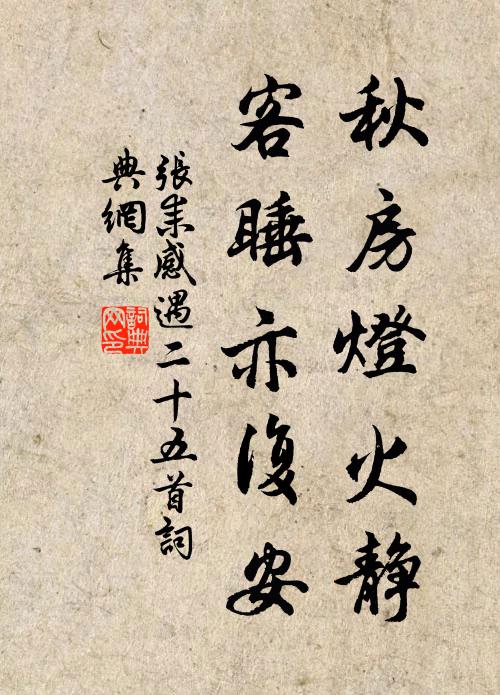 秋房燈火静
客睡亦復安
張耒感遇二十五首詞
典網集
詞典網印